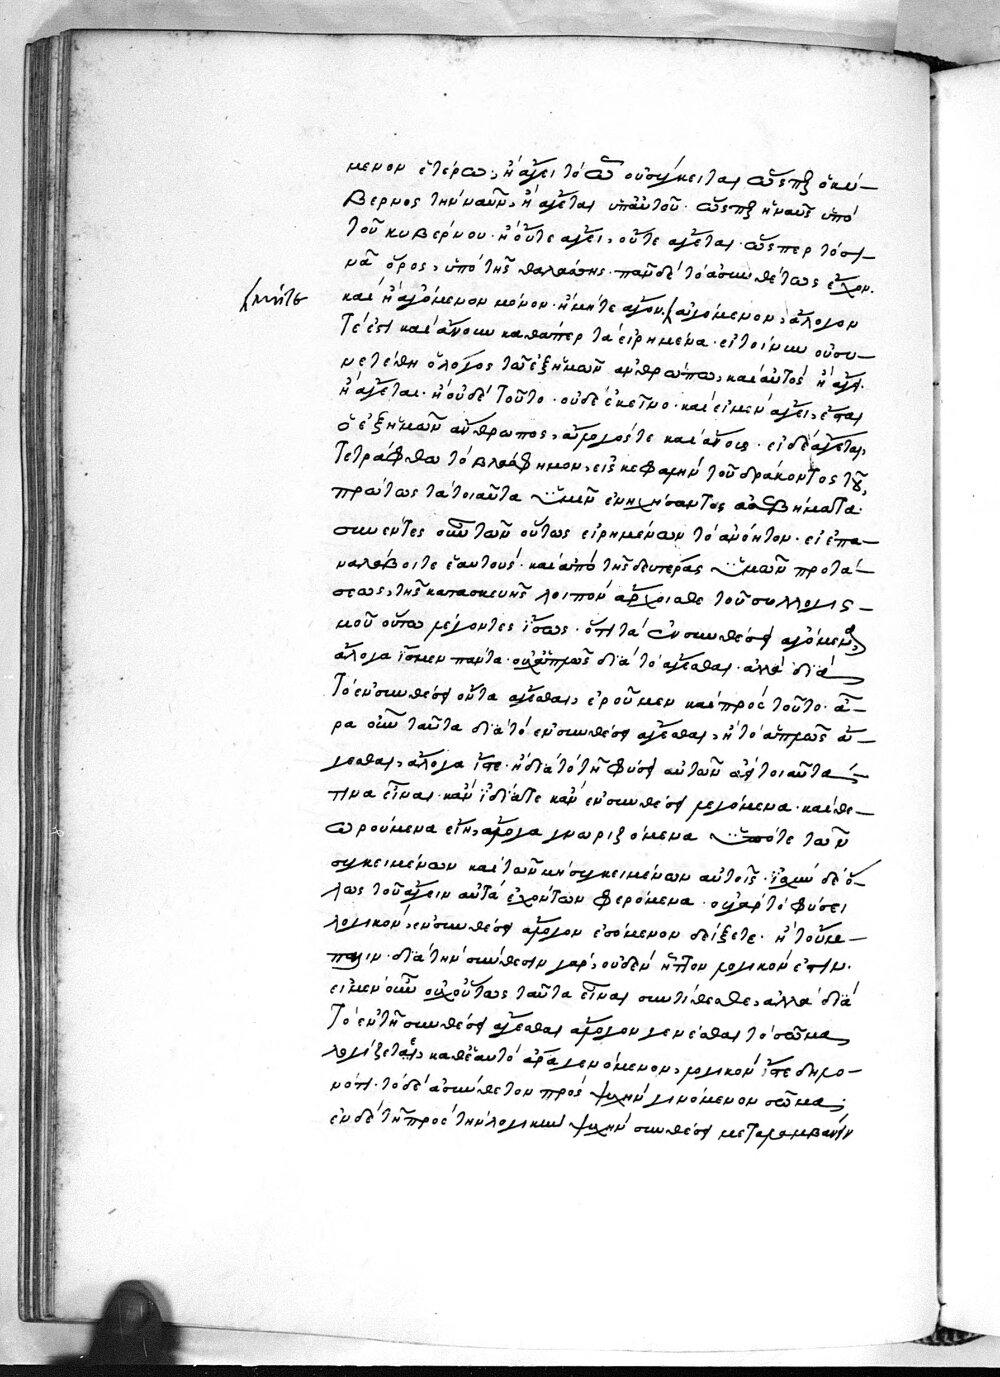 μενον ἑτέρω, ἢ ἄγει τὸ ὧ οὐ σύγκειται ὥσπερ ὁ κυ-
βερνος τὴν ναῦν, ἢ ἄγεται ὑπ' αὐτοῦ· ὥσπερ ἡ ναῦς ὑπὸ
τοῦ κυβέρνου· ἢ οὔτε ἄγει, οὔτε ἄγεται· ὥσπερ τὸ σι-
νᾶ ὄρος, ὑπὸ τῆς θαλάσσης· πᾶν δὲ τὸ ἀσυνθέτως ἔχον,
καὶ ἢ ἀγόμενον μόνον· ἢ μήτε ἄγον, ἀγόμενον, ἄλογον
μήτε
τέ ἐστι καὶ ἄνουν καθάπερ τὰ εἰρημένα· εἰ τοίνυν οὐ συ-
νετέθη ὁ λόγος τῶ ἐξ ἡμῶν ἀνθρώπω, καὶ αὐτὸς ἢ ἄγει
ἢ ἄγεται· ἢ οὐδὲ τοῦτο· οὐδὲ ἐκεῖνο· καὶ εἰ μὲν ἄγει, ἔσται
ὁ ἐξ ἡμῶν ἄνθρωπος, ἄλογός τε καὶ ἄνους· εἰ δὲ ἄγεται,
τετράφθω τὸ βλάσφημον, εἰς κεφαλὴν τοῦ δράκοντος τοῦ
πρώτως τὰ τοιαῦτα ὑμῖν ἐνηχήσαντος ἀσεβήματα·
συνέντες οὖν τῶν οὕτως εἰρημένων τὸ ἀνόητον· εἰ ἐπα-
ναλάβοιτε ἑαυτούς· καὶ ἀπὸ τῆς δευτέρας ὑμῶν προτά-
σεως, τῆς κατασκευῆς λοιπὸν ἄρχοισθε τοῦ συλλογις-
μοῦ οὕτω λέγοντες ἴσως· ὅτι τὰ ἐν συνθέσει ἀγόμενα,
ἄλογα ἴσμεν πάντα· οὐχ ἁπλῶς διὰ τὸ ἄγεσθαι· ἀλλὰ διὰ
τὸ ἐν συνθέσει ὄντα ἄγεσθαι, ἐροῦμεν καὶ πρὸς τοῦτο· ἆ-
ρα οὖν ταῦτα διὰ τὸ ἐν συνθέσει ἄγεσθαι, ἢ τὸ ἁπλῶς ἄ-
γεσθαι, ἄλογα ἔστε· ἢ διὰ τὸ τῆ φύσει αὐτῶν τοιαῦτα
τινα εἶναι· κἂν ἰδία τε κἂν ἐν συνθέσει λεγόμενα· καὶ θε-
ωρούμενα εἴη, ἄλογα γνωριζόμενα ὑπό τε τῶν
συγκειμένων καὶ τῶν μὴ συγκειμένων αὐτοῖς· ἰσχὺν δὲ ὅ-
λως τοῦ ἄγειν αὐτὰ ἐχόντων φερόμενα· οὐ γὰρ τὸ φύσει
λογικόν, ἐν συνθέσει ἄλογον ἐσόμενον δείξετε· ἢ τοὔμ-
παλιν· διὰ τὴν σύνθεσιν γάρ, οὐδὲν ἧττον λογικόν ἐστιν·
εἰ μὲν οὖν οὐχ οὕτως ταῦτα εἶναι συντίθεσθε, ἀλλὰ διὰ
τὸ ἐν τῆ συνθέσει ἄγεσθαι ἄλογον γενέσθαι τὸ σῶμα
λογίζεται, καθ' ἑαυτὸ ἄρα γενόμενον, λογικὸν ἔσται δηλο-
νότι· τὸ δὲ ἀσύνθετον πρὸς ψυχὴν γινόμενον σῶμα,
ἐν δὲ τῆ πρὸς τὴν λογικὴν ψυχὴν συνθέσει μεταλαμβάνειν